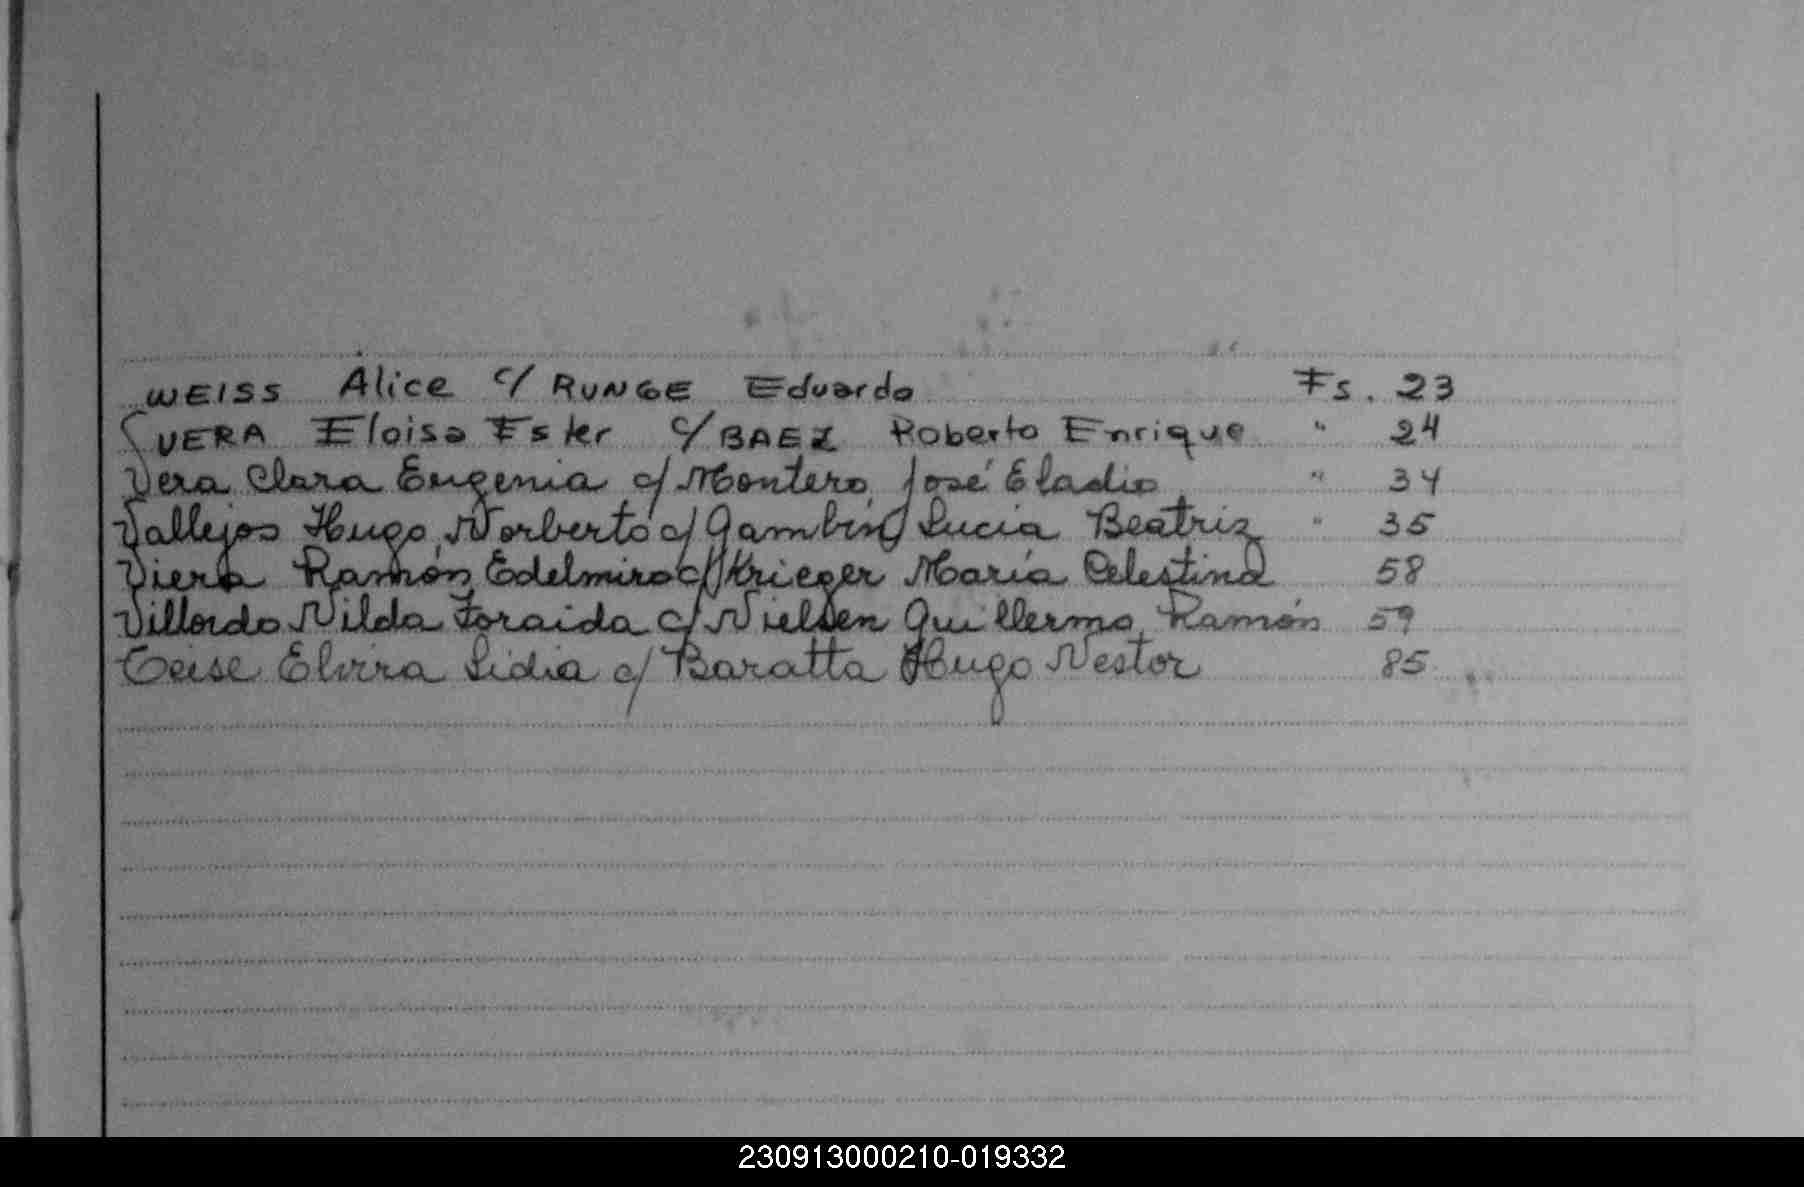 WEISS Alice c/ RUNGE Eduardo Fs. 23
VERA Eloisa Ester c/ BAEZ Roberto Enrique " 24
Vera Clara Eugenia c/ Montero José Eladio " 34
Vallejos Hugo Norberto c/ Gambin Lucia Beatriz " 35
Viera Ramón Edelmiro c/ Krieger María Celestina 58
Villordo Nilda Zoraida c/ Nielsen Guillermo Ramón 59
Elvira Lidia c/ Baratta Hugo Nestor 85
230913000210-019332